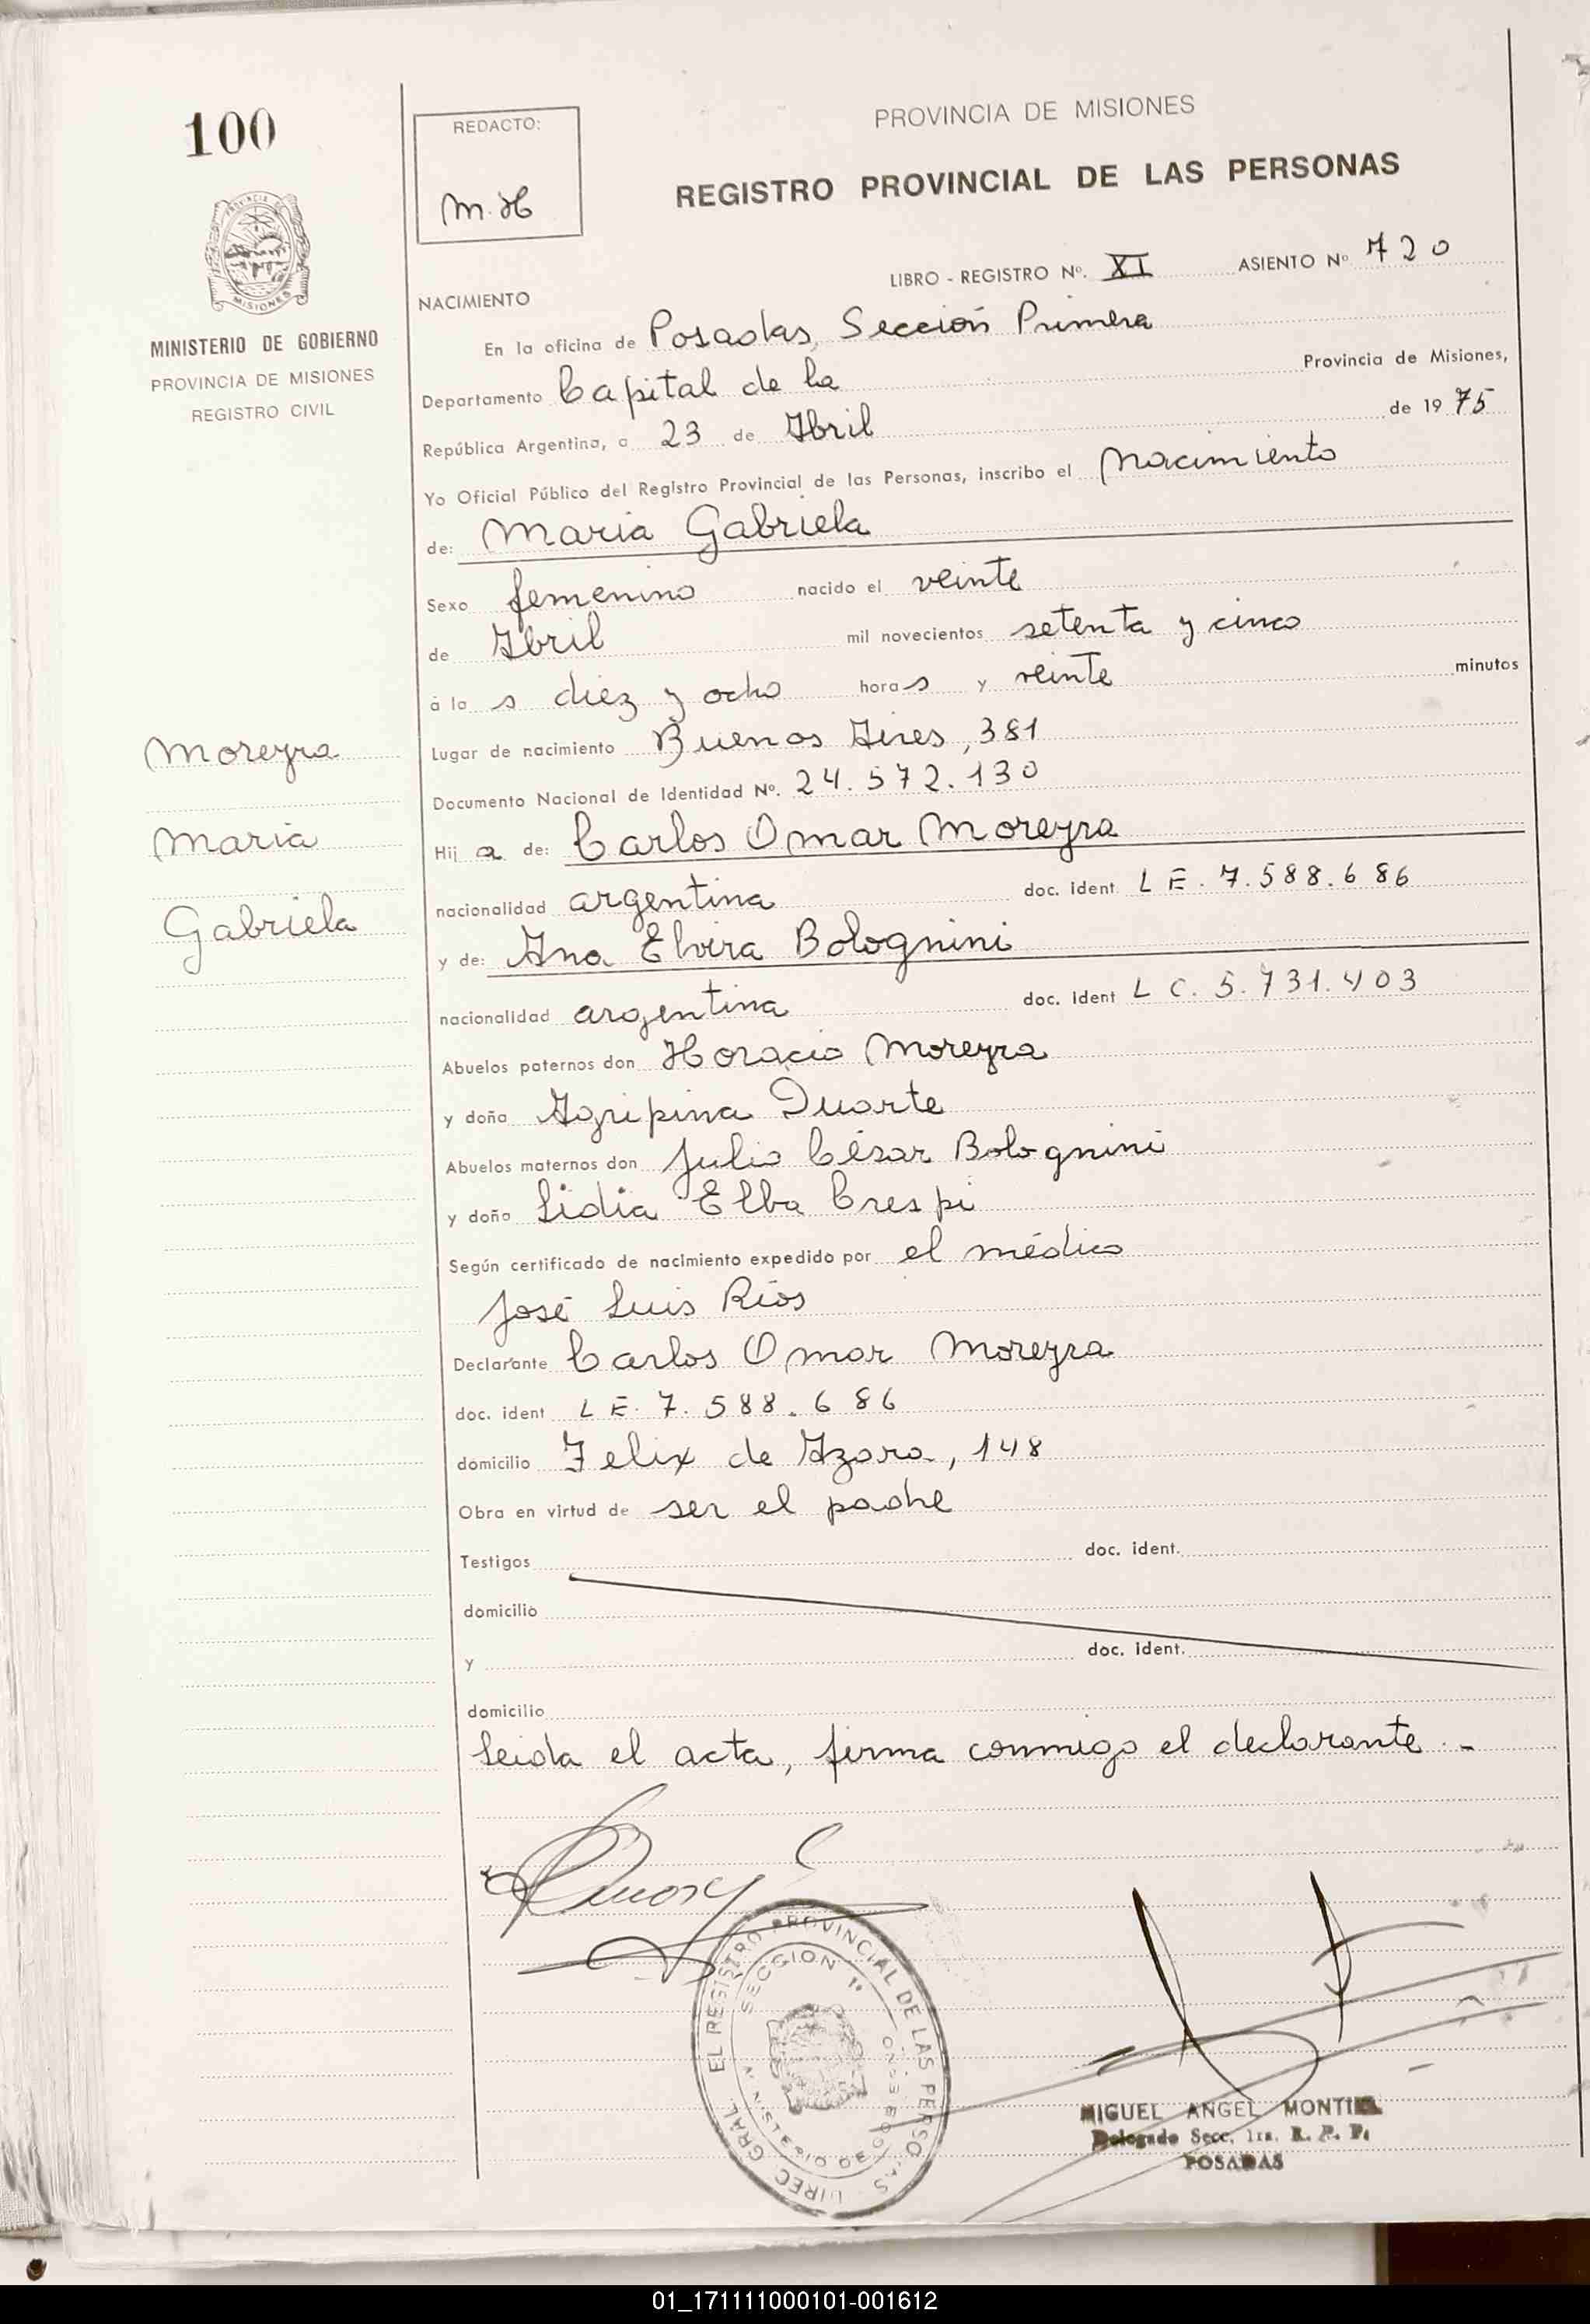 100
REDACTO:
M. H
PROVINCIA DE MISIONES
REGISTRO PROVINCIAL DE LAS PERSONAS
PROVINCIA DE
MISIONES
MINISTERIO DE GOBIERNO
PROVINCIA DE MISIONES
REGISTRO CIVIL
LIBRO - REGISTRO Nº. XI ASIENTO Nº 720
NACIMIENTO
En la oficina de Posadas, Sección Primera
Departamento Capital de la Provincia de Misiones,
República Argentina, a 23 de Abril de 1975
Yo Oficial Público del Registro Provincial de las Personas, inscribo el Nacimiento
de: Maria Gabriela
Sexo femenino nacido el veinte
de Abril mil novecientos setenta y cinco
á la s diez y ocho hora s y veinte minutos
Lugar de nacimiento Buenos Aires, 381
Documento Nacional de Identidad Nº. 24.572.130
Hij a de: Carlos Omar Moreyra
nacionalidad argentina doc. ident. L E. 7.588.686
y de: Ana Elvira Bolognini
nacionalidad argentina doc. ident L C. 5.731.403
Abuelos paternos don Horacio Moreyra
y doña Agripina Duarte
Abuelos maternos don Julio César Bolognini
y doña Lidia Elba Crespi
Según certificado de nacimiento expedido por el médico
José Luis Ríos
Declarante Carlos Omar Moreyra
doc. ident L E. 7.588.686
domicilio Felix de Azara, 148
Obra en virtud de ser el padre
Testigos doc. ident.
domicilio
y doc. ident.
domicilio
Leida el acta, firma conmigo el declarante.-
Moreyra
Maria
Gabriela
DIREC. GRAL. EL REGISTRO PROVINCIAL DE LAS PERSONAS
SECCION 1ª
MINISTERIO DE GOBIERNO
MIGUEL ANGEL MONTIEL
Delegado Secc. 1ra. R. P. P.
POSADAS
01_171111000101-001612